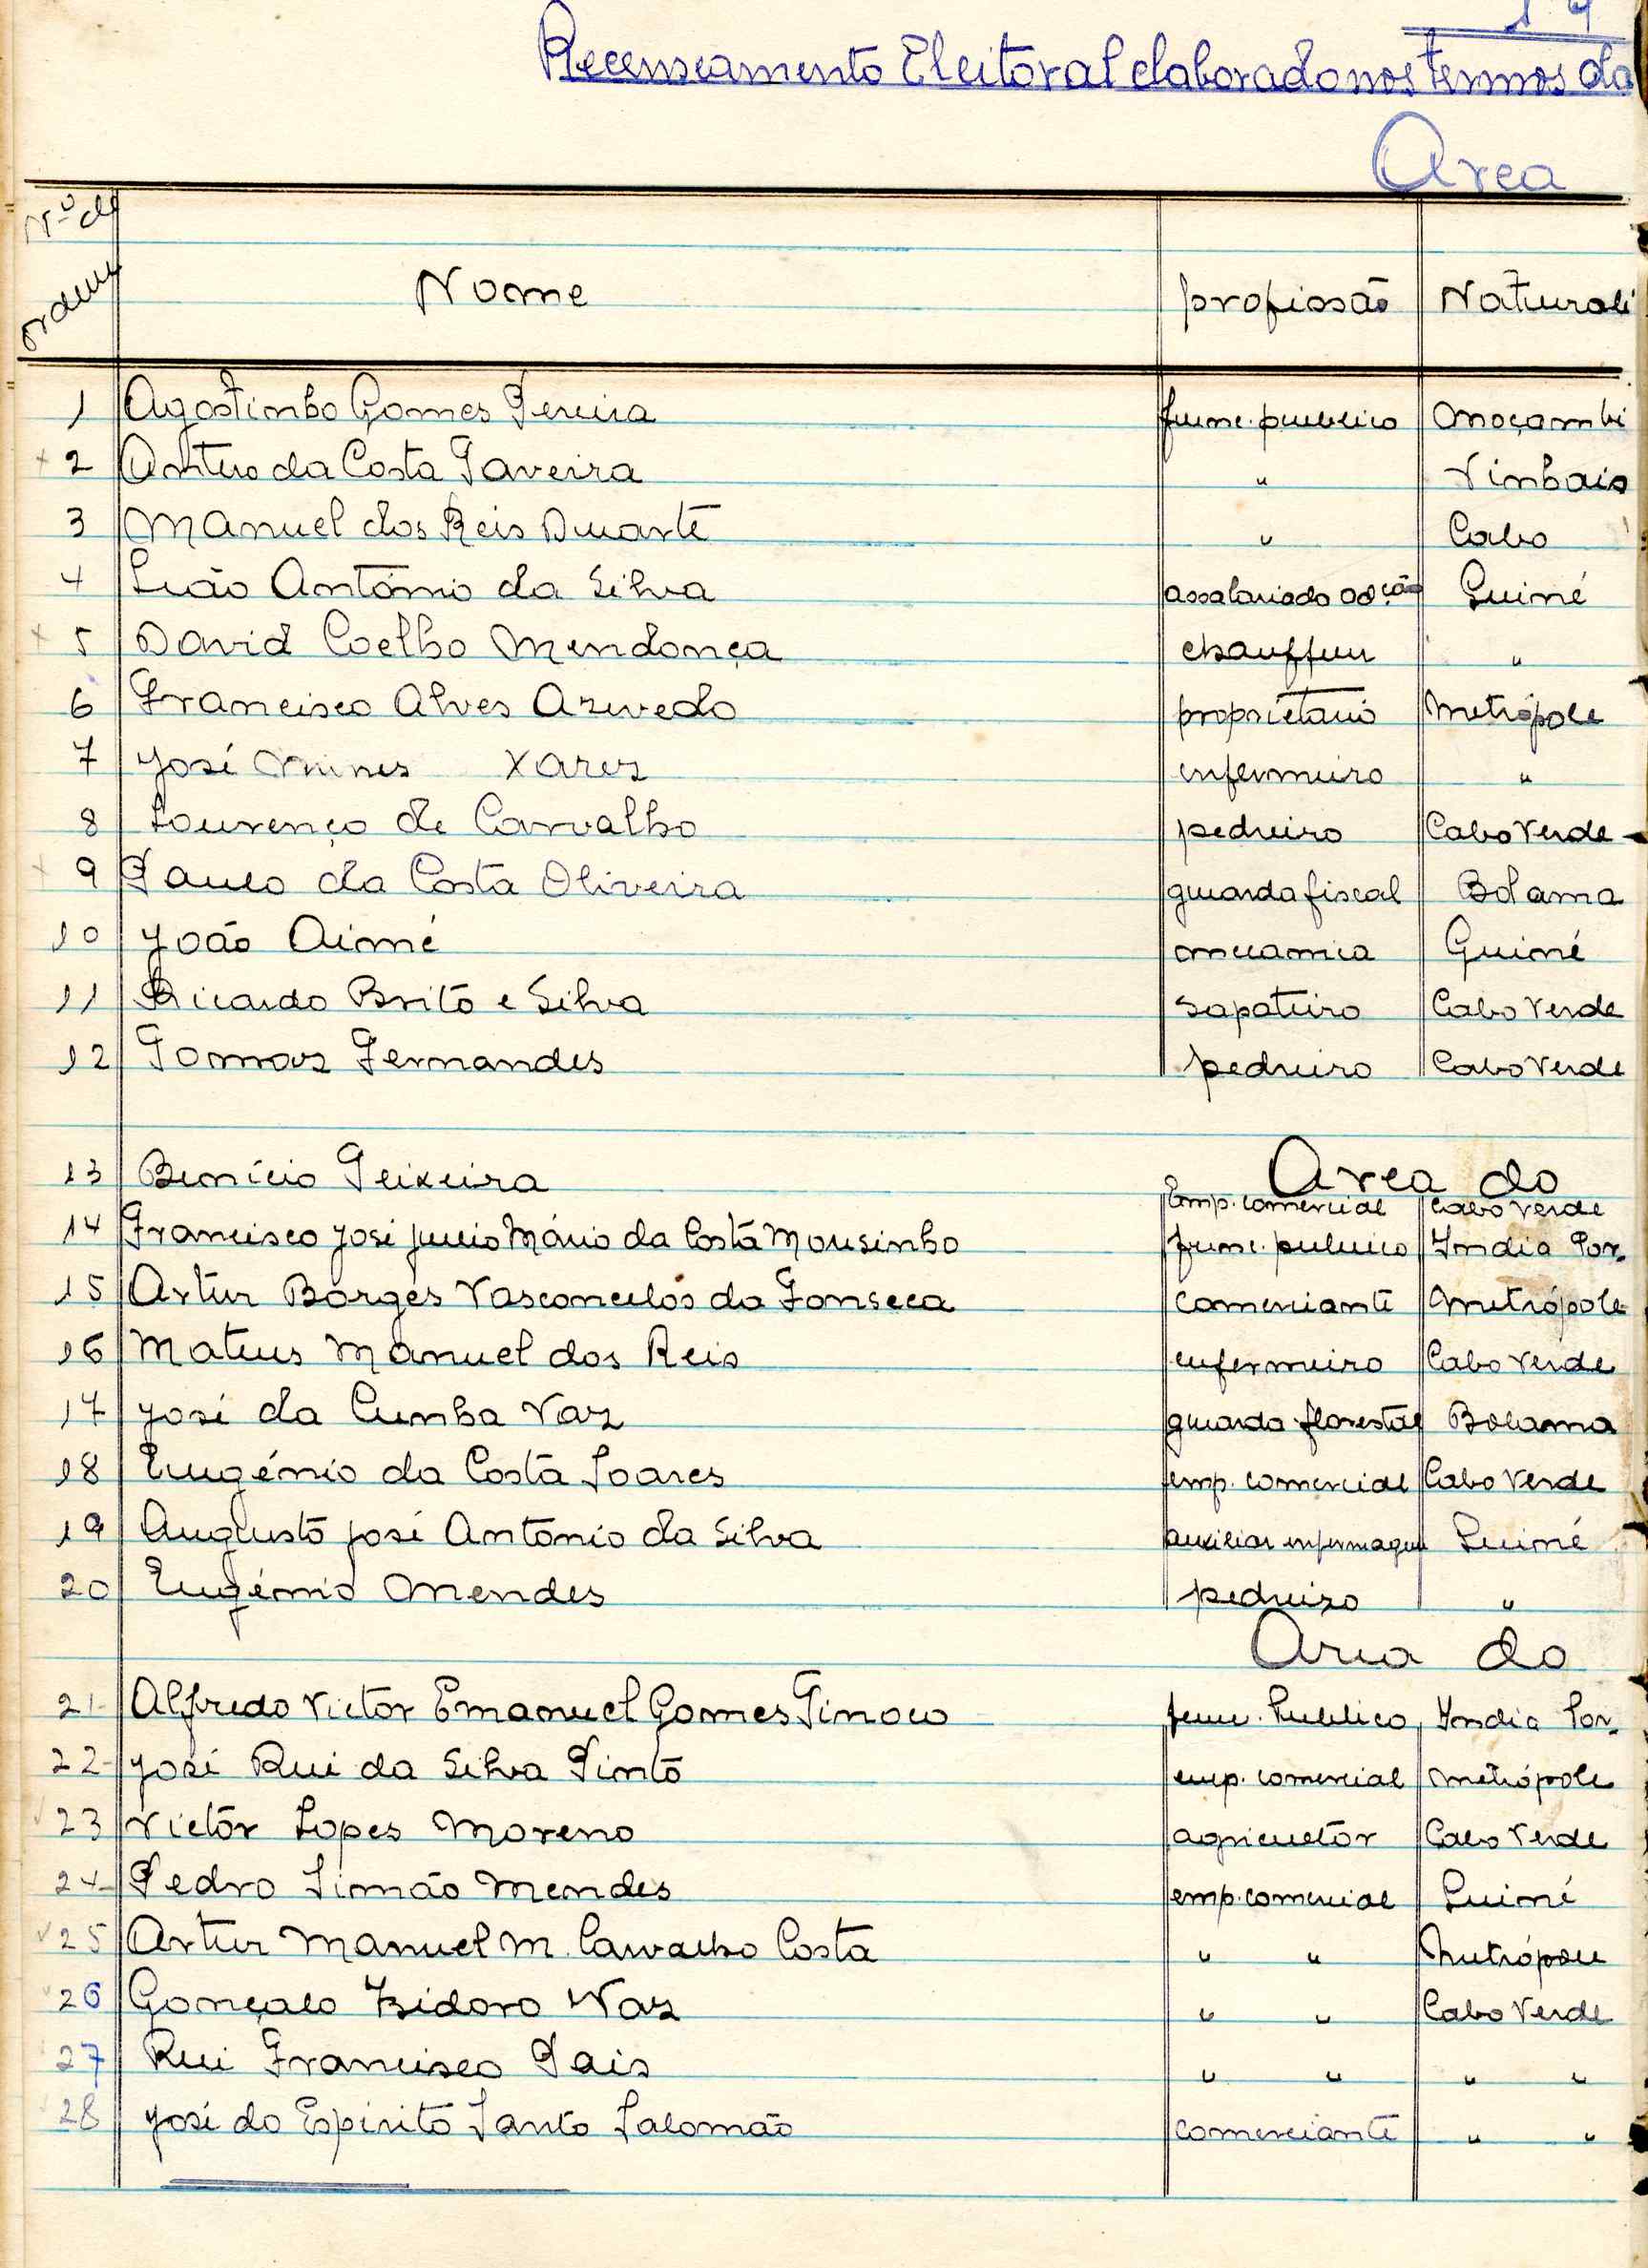 19
Recenseamento Eleitoral elaborado nos termos da
Area
Nº de ordem Nome profissão Naturali
1 Agostinho Gomes Pereira func. publico Moçambi
2 Antero da Costa Taveira " Vinhais
3 Manuel dos Reis Duarte " Cabo
4 Leão António da Silva assalariado adção Guiné
5 David Coelho Mendonça chauffeur "
6 Francisco Alves Azevedo proprietario Metrópole
7 José Nunes Xarez enfermeiro "
8 Lourenço de Carvalho pedreiro Cabo Verde
9 Paulo da Costa Oliveira guarda fiscal Bolama
10 João Aimé mecanica Guiné
11 Ricardo Brito e Silva sapateiro Cabo Verde
12 Tomaz Fernandes pedreiro Cabo Verde
Area do
13 Benicio Teixeira Emp. comercial Cabo Verde
14 Francisco José Julio Mário da Costa Mousinho func. publico India Por.
15 Artur Borges Vasconcelos da Fonseca comerciante Metrópole
16 Mateus Manuel dos Reis enfermeiro Cabo Verde
17 José da Cunha Vaz guarda florestal Bolama
18 Eugénio da Costa Soares emp. comercial Cabo Verde
19 Augusto José António da Silva auxiliar enfermagem Guiné
20 Eugénio Mendes pedreiro "
Area do
21 Alfredo Victor Emanuel Gomes Tinoco func. Publico India Por.
22 José Rui da Silva Pinto emp. comercial Metrópole
23 Victor Lopes Moreno agricultor Cabo Verde
24 Pedro Simão Mendes emp. comercial Guiné
25 Artur Manuel M. Carvalho Costa " " Metrópole
26 Gonçalo Izidoro Vaz " " Cabo Verde
27 Rui Francisco Pais " " " "
28 José do Espirito Santo Salomão comerciante " "